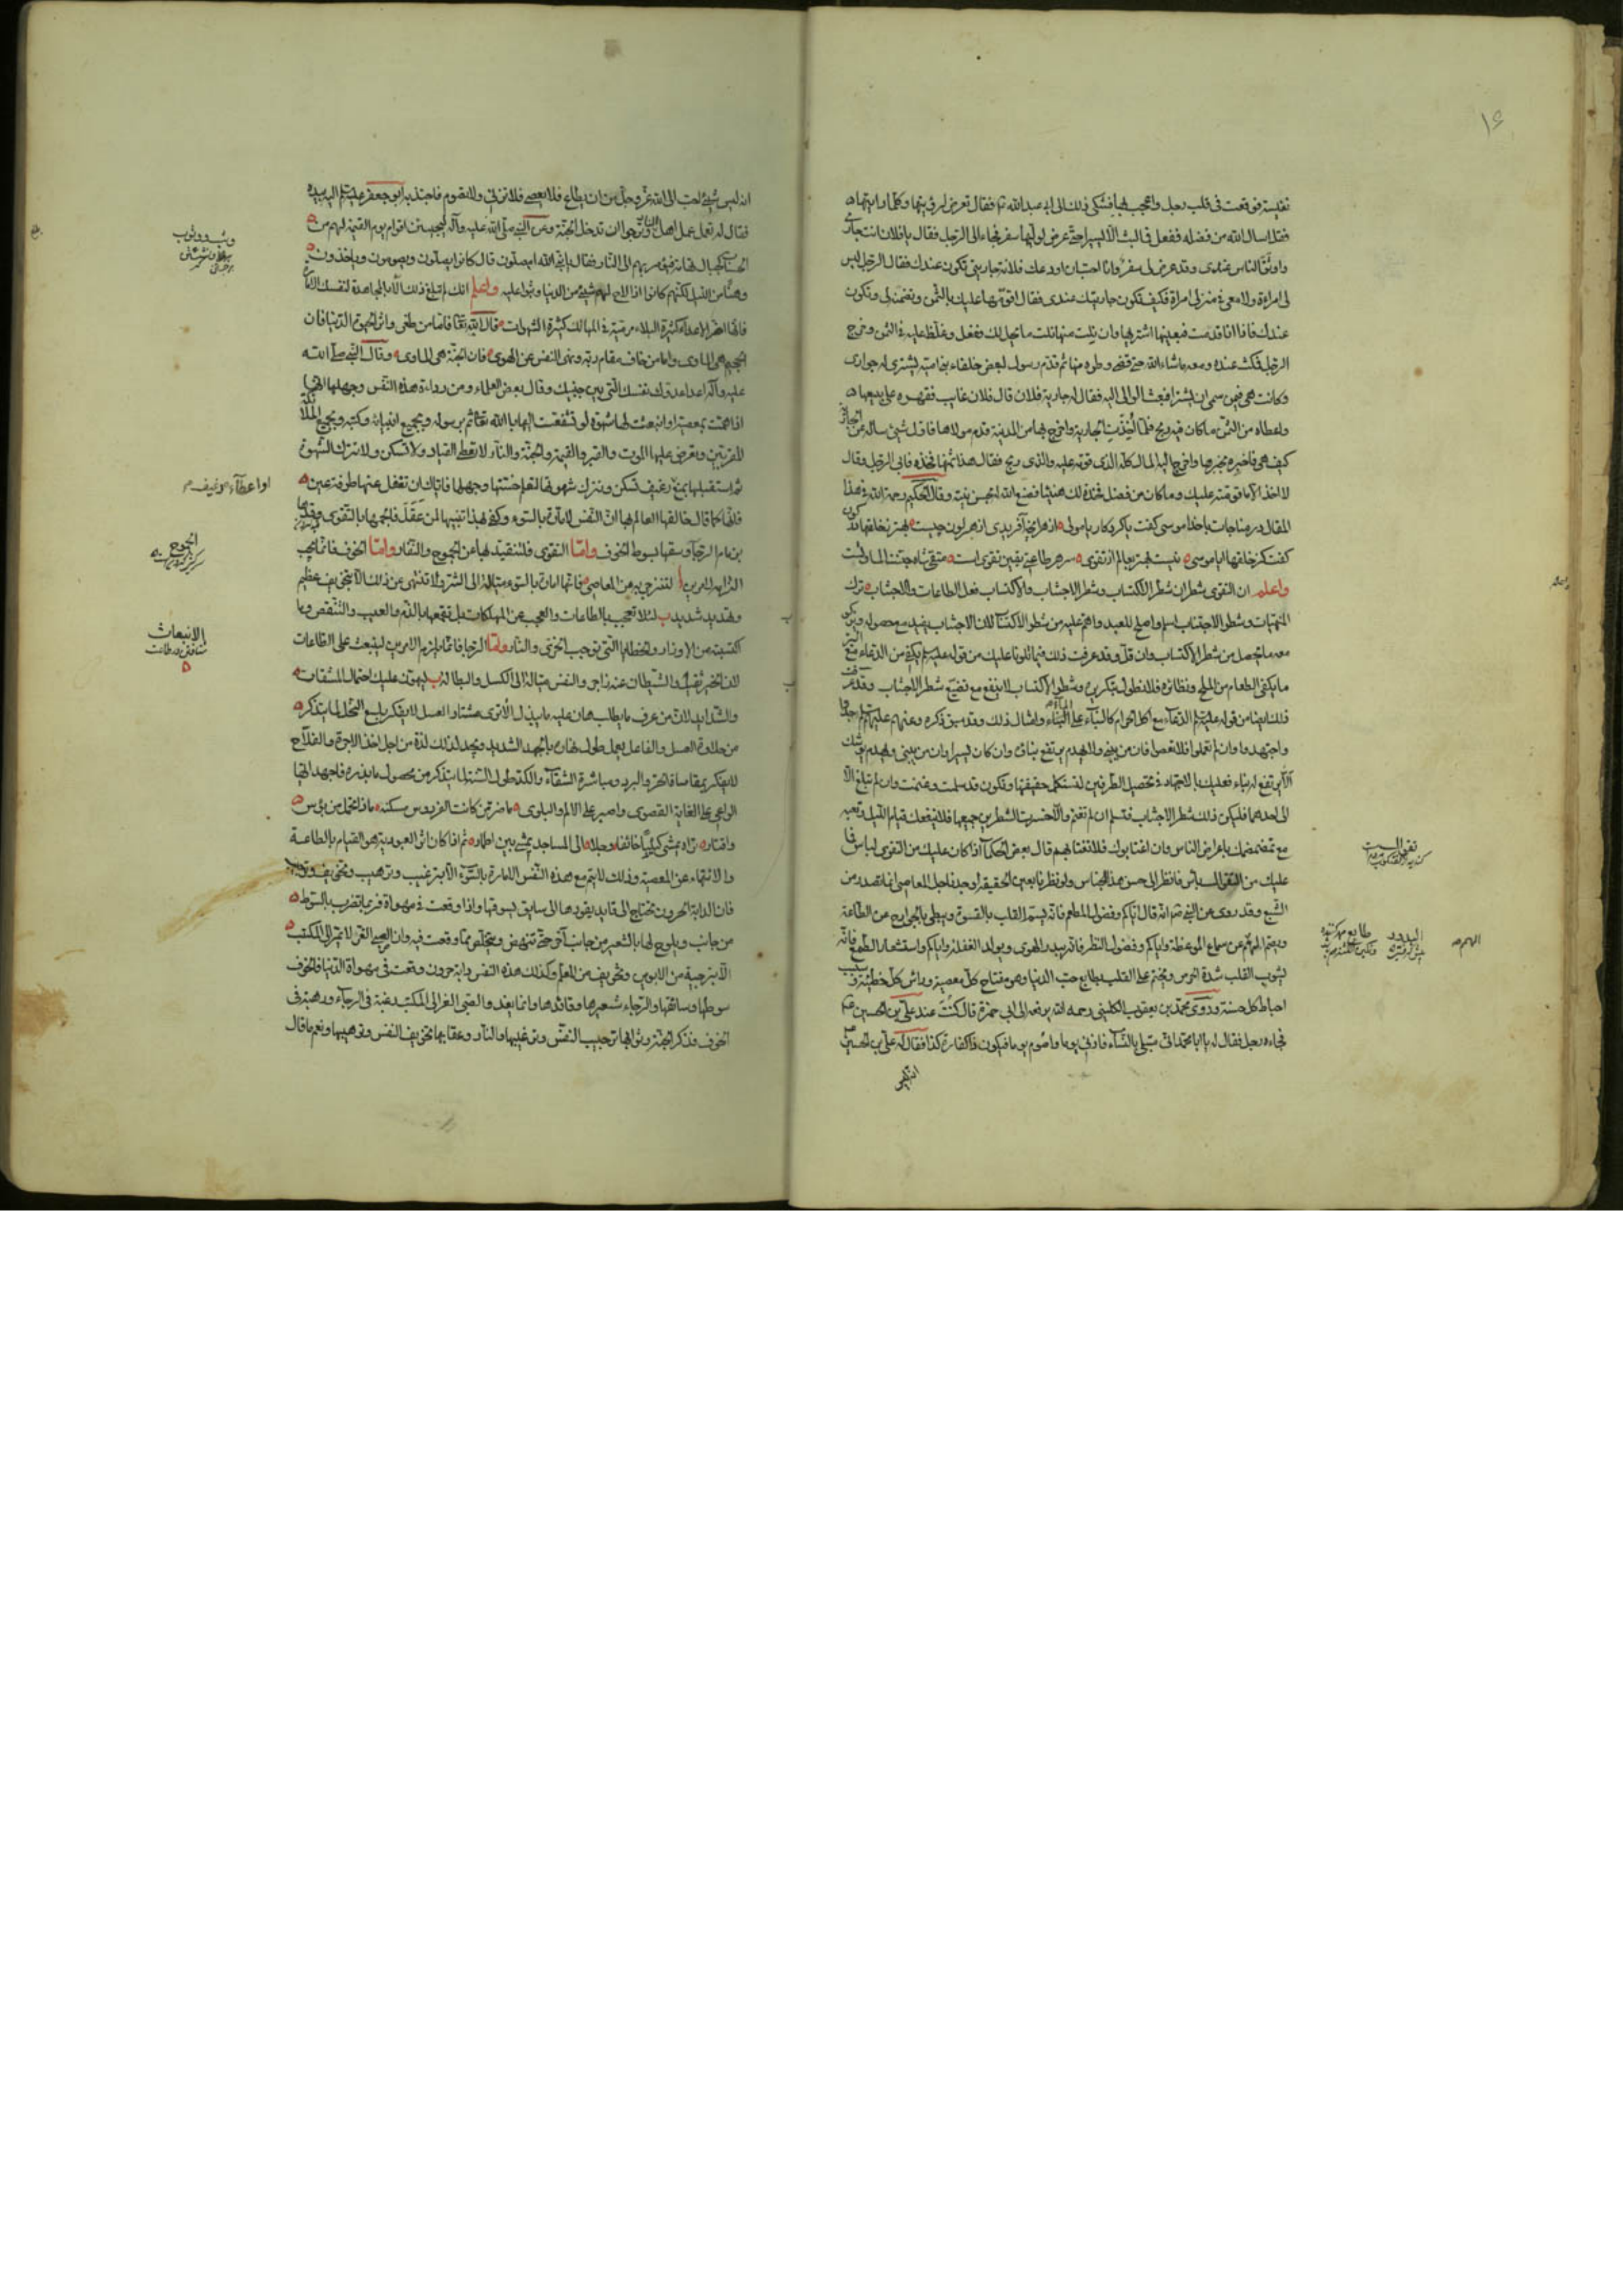 ۱۶
نفيسة فوقعت في قلب رجل واعجب بها فشكى ذلك الى ابي عبد الله ع فقال تعرض لرؤيتها وكلما رايتها
فقل اسال الله من فضله ففعل فما لبث الا يسيرا حتى عرض لوليها سفر فجاء الى الرجل فقال يا فلان انت جارى
واوثق الناس عندى وقد عرض لى سفر وانا احب ان اودعك فلانة جاريتى تكون عندك فقال الرجل ليس
لى امراة ولا معى فى منزلى امراة فكيف تكون جاريتك عندى فقال اقومها عليك بالثمن وتضمنه لى وتكون
عندك فاذا انا قدمت فبعنيها اشتريها وان نلت منها نلت ما يحل لك ففعل وغلظ عليه فى الثمن وخرج
الرجل فمكث عنده ومعه ماشاء الله حتى قضى وطره منها ثم قدم رسول لبعض خلفاء بنى امية يشترى له جوارى
وكانت هى فيمن سمى ان يشترا فبعث الوالى اليه فقال له جارية فلان قال فلان غايب فقهره على بيعها
واعطاه من الثمن ما كان فيه ربح فلما اخذت الجارية واخرج بها من المدينة قدم مولاها فاول شيئ ساله عن الجارية
كيف هى فاخبره بخبرها واخرج اليه المال كله الذى قومه عليه والذى ربح فقال هذا ثمنها فخذه فابى الرجل وقال
لا اخذ الا ما قومته عليك وما كان من فضل فخذه لك هنيئا فصنع الله له بحسن نيته وقال الحكيم رحمه الله فى هذا
المقال در مناجات باخدا موسى كفت يا كردكار يا مولى از هر انچه آفريدى از هر لون چيست بهتر بخلقها
كفت كز خلقها ايا موسى نيست بهتر بعالم از تقوى سر هر طاعتى يقين تقوى است متقى شاه جنة الماوى است
واعلم ان التقوى شطران شطر الاكتساب وشطر الاجتناب والاكتساب فعل الطاعات والاجتناب ترك
المنهيات وشطر الاجتناب اسلم واصلح للعبد واهم عليه من شطر الاكتساب لان الاجتناب يفيد مع حصوله
معه ما يحصل من شطر الاكتساب وان قل وقد عرفت ذلك فيما تلونا عليك من قوله عليه السلم يكفى من الدعاء مع
ما يكفى الطعام من الملح ونظائره فلا نطول بتكريره وشطر الاكتساب لا ينفع مع تضييع شطر الاجتناب وقد عرفت
ذلك ايضا من قوله عليه السلم الدعاء مع اكل الحرام كالبناء على الماء وامثال ذلك وقد سبق ذكره وعنهم عليهم السلم جدوا
واجتهدوا وان لم تعملوا فلا تعصوا فان من يبنى ولا يهدم يرتفع بناؤه وان كان يسيرا وان من يبنى ويهدم يوشك
الا يرتفع له بناء فعليك بالاجتهاد فى تحصيل الطرفين لتستكمل حقيقتها وتكون قد سلمت وغنمت وان لم تبلغ الا
الى احدهما فليكن ذلك شطر الاجتناب فتسلم ان لم تغنم والا خسرت الشطرين جميعا فلا ينفعك قيام الليل وتعبه
مع تمضمضك باعراض الناس وان اغتابوك فلا تغتابهم قال بعض الحكماء اذا كان عليك من التقوى لباس فما
عليك من الباس فانظر الى حسن هذا الجناس ولو نظرنا بعين الحقيقة لوجدنا جل المعاصى انما تصدر من
الشبع وقد روى عن النبى ص انه قال اياكم وفضول المطعم فانه يسم القلب بالقسوة ويبطى بالجوارح عن الطاعة
ويصم الهمم عن سماع الموعظة واياكم وفضول النظر فانه يبدر الهوى ويولد الغفلة واياكم واستشعار الطمع فانه
يشوب القلب شدة الحرص ويختم على القلب بطابع حب الدنيا وهو مفتاح كل معصية وراس كل خطيئة وسبب
احباط كل حسنة وروى محمد بن يعقوب الكلينى رحمه الله يرفعه الى ابى حمزة قال كنت عند على بن الحسين ع
فجاءه رجل فقال له يا ابا محمد انى مبتلى بالنساء فازنى يوما واصوم يوما فيكون ذا كفارة لذا فقال له على بن الحسين
انه ليس شيئ احب الى الله عز وجل من ان يطاع فلا يعصى فلا تزنى ولا تصوم فاجتذبه ابو جعفر عليه السلم اليه بيده
فقال له تعمل عمل اهل النار وترجوا ان تدخل الجنة وعن النبى صلى الله عليه وآله ليجيئن اقوام يوم القيمة لهم من
الحسنات كجبال تهامة فيؤمر بهم الى النار فقال يا نبى الله امصلون قال كانوا يصلون ويصومون وياخذون
وهنا من الليل لكنهم كانوا اذا لاح لهم شيئ من الدنيا وثبوا عليه واعلم انك لم تبلغ ذلك الا بالمجاهدة لنفسك الامارة
فانها اضر الاعداء كثيرة البلاء مرمية فى المهالك كثيرة الشهوات قال الله تعا فاما من طغى واثر الحيوة الدنيا فان
الجحيم هى الماوى واما من خاف مقام ربه ونهى النفس عن الهوى فان الجنة هى الماوى وقال النبى صلى الله
عليه وآله اعدا عدوك نفسك التى بين جنبيك وقال بعض العلماء ومن رداءة هذه النفس وجهلها انها
اذا همت بمعصية او انبعثت لها شهوة لو تشفعت اليها بالله تعا ثم برسوله وبجميع انبيائه وكتبه وبجميع الملائكة
المقربين وتعرض عليها الموت والقبر والقيمة والجنة والنار لا تعطى القياد ولا تسكن ولا تترك الشهوة
ثم استقبلها بمنع رغيف تسكن وتترك شهوتها لتعلم خستها وجهلها فاياك ان تغفل عنها طرفة عين
فانها كما قال خالقها العالم بها ان النفس لامارة بالسوء وكفى بهذا تنبيها لمن عقل فالجمها بالتقوى وقدها
بزمام الرجآ وسقها بسوط الخوف واما التقوى فلتقيدها عن الجموح والنفار واما الخوف فانما يجب
لتنزجر به عن المعاصى فانها امارة بالسوء ميالة الى الشر ولا تنتهى عن ذلك الا بتخويف عظيم
وتهديد شديد ب لئلا تعجب بالطاعات والعجب من المهلكات بل تقمعها بالذم والعيب والنقص وما
اكتسبته من الاوزار والخطايا التى توجب الخزى والنار واما الرجا فانما يلزم الامرين لينبعث على الطاعات
لان الخير ثقيل والشيطان عنه زاجر والنفس ميالة الى الكسل والبطالة ب ليهون عليك احتمال المشقات
والشدايد لان من عرف ما يطلب هان عليه ما يبذل الا ترى مشتار العسل لا يفكر بلسع النحل لما يتذكر
من حلاوة العسل والفاعل يعمل طول نهاره بالجهد الشديد ويجد لذلك لذة من اجل اخذ الاجرة والفلاح
لا يفكر بمقاساة الحر والبرد ومباشرة الشقاء والكد طول السنة لما يتذكر من حصول ما يبذره فاجهد ايها
الواعى على الغاية القصوى واصبر على الالم والبلوى ما ضر من كانت الفردوس مسكنه ماذا تحمل من بؤس
واقتار تراه يمشى كئيبا خائفا وجلا الى المساجد يمشى بين اطمار ثم اذا كان اثر العبودية هو القيام بالطاعة
والانتهاء عن المعصية وذلك لا يتم مع هذه النفس الامارة بالسوء الا بترغيب وترهيب وتخويف
فان الدابة الحرون تحتاج الى قايد يقودها والى سايق يسوقها واذا وقعت فى مهواة فربما تضرب بالسوط
من جانب ويلوح لها بالشعير من جانب آخر حتى تنهض وتتخلص مما وقعت فيه وان الصبى الغر لا يمر الى المكتب
الا بترجية من الابوين وتخويف من المعلم وكذلك هذه النفس دابة حرون وقعت فى مهواة الدنيا فالخوف
سوطها وسائقها والرجاء شعيرها وقائدها وانما يغدو الصبى الغر الى المكتب رغبة فى الرجآء ورهبة فى
الخوف فذكر الجنة وثوابها ترجيب النفس وترغيبها والنار وعقابها تخويف النفس وترهيبها ونعم ما قال
الجموح
الانبعاث